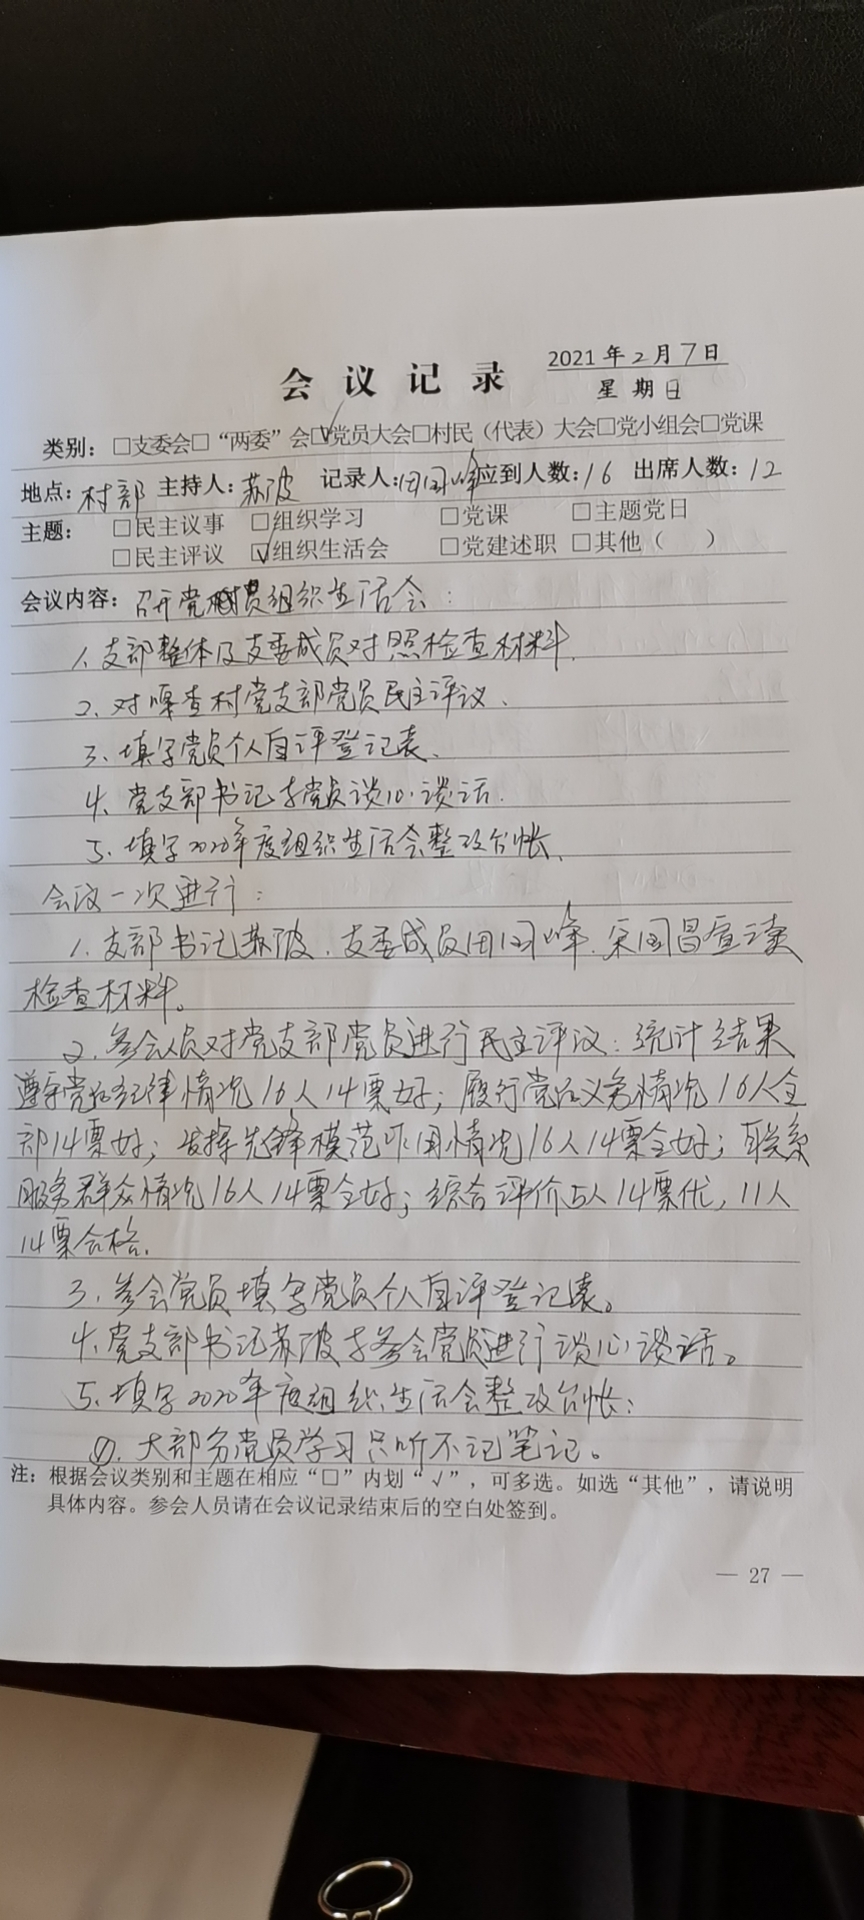 会议记录 2021年2月7日
星期日
类别：□支委会□“两委”会☑党员大会□村民（代表）大会□党小组会□党课
地点：村部 主持人：苏波 记录人：田国峰 应到人数：16 出席人数：12
主题： □民主议事 □组织学习 □党课 □主题党日
□民主评议 ☑组织生活会 □党建述职 □其他（ ）
会议内容：召开党员组织生活会：
1、支部整体及支委成员对照检查材料.
2、对嘎查村党支部党员民主评议、
3、填写党员个人自评登记表、
4、党支部书记与党员谈心谈话.
5、填写2020年度组织生活会整改台帐、
会议一次进行：
1、支部书记苏波、支委成员田国峰、宋国昌宣读
检查材料。
2、参会人员对党支部党员进行民主评议：统计结果
遵守党的纪律情况16人14票好；履行党的义务情况16人全
部14票好；发挥先锋模范作用情况16人14票全好；联系
服务群众情况16人14票全好；综合评价5人14票优，11人
14票合格.
3、参会党员填写党员个人自评登记表。
4、党支部书记苏波与参会党员进行谈心谈话。
5、填写2020年度组织生活会整改台帐：
①、大部分党员学习只听不记笔记。
注：根据会议类别和主题在相应“□”内划“√”，可多选。如选“其他”，请说明
具体内容。参会人员请在会议记录结束后的空白处签到。
— 27 —